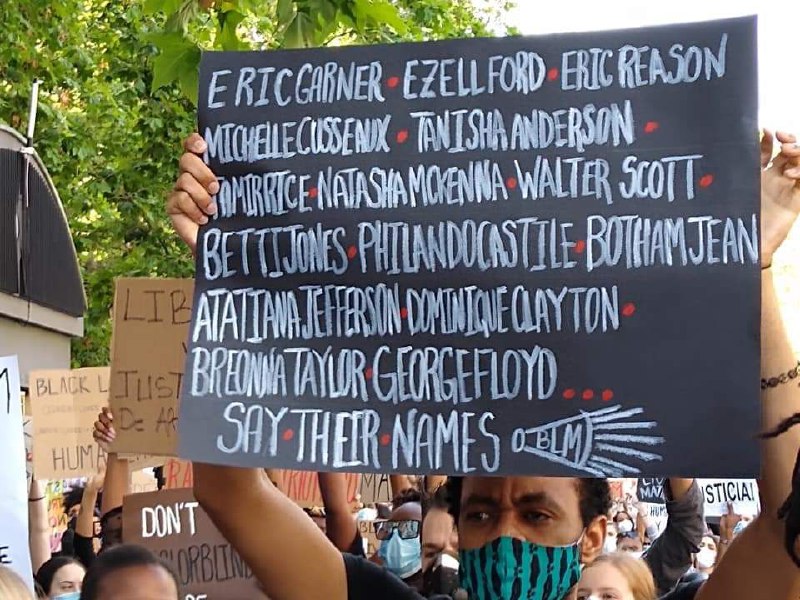 ERIC GARNER • EZELL FORD • ERIC REASON
MICHELLE CUSSEAUX • TANISHA ANDERSON •
TAMIR RICE • NATASHA MCKENNA • WALTER SCOTT •
BETTI JONES • PHILANDO CASTILE • BOTHAM JEAN
ATATIANA JEFFERSON • DOMINIQUE CLAYTON •
BREONNA TAYLOR • GEORGE FLOYD ...
SAY • THEIR • NAMES BLM
LIB
JUST
DE AF
BLACK L
HUMA
DON'T
COLORBLIND
USTICIA!